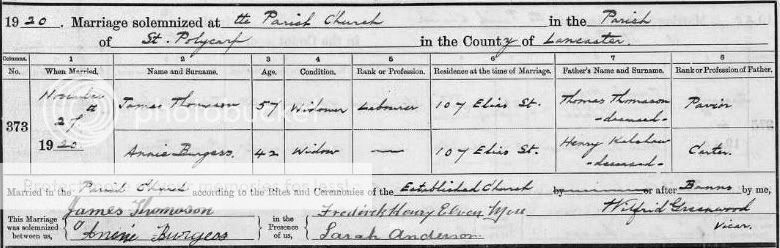 1920. Marriage solemnized at the Parish Church in the Parish
of St. Polycarp in the County of Lancaster.
Columns. 1 2 3 4 5 6 7 8
No. When Married. Name and Surname. Age. Condition. Rank or Profession. Residence at the time of Marriage. Father's Name and Surname. Rank or Profession of Father.
373 November 27th 1920 James Thomason 57 Widower Labourer 107 Elias St. Thomas Thomason - deceased - Pavior
Annie Burgess. 42 Widow — 107 Elias St. Henry Kelshaw - deceased - Carter.
Married in the Parish Church according to the Rites and Ceremonies of the Established Church by or after Banns by me,
This Marriage was solemnized between us, James Thomason Annie Burgess in the Presence of us, Frederick Henry Sarah Anderson. Wilfrid Greenwood Vicar.